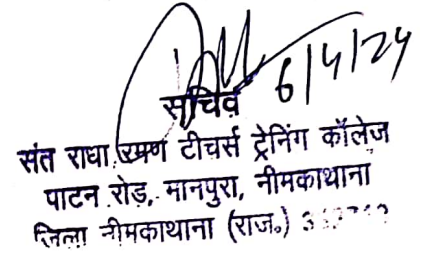 6/4/24
सचिव
संत राधा रमण टीचर्स ट्रेनिंग कॉलेज
पाटन रोड, मानपुरा, नीमकाथाना
जिला नीमकाथाना (राज.)